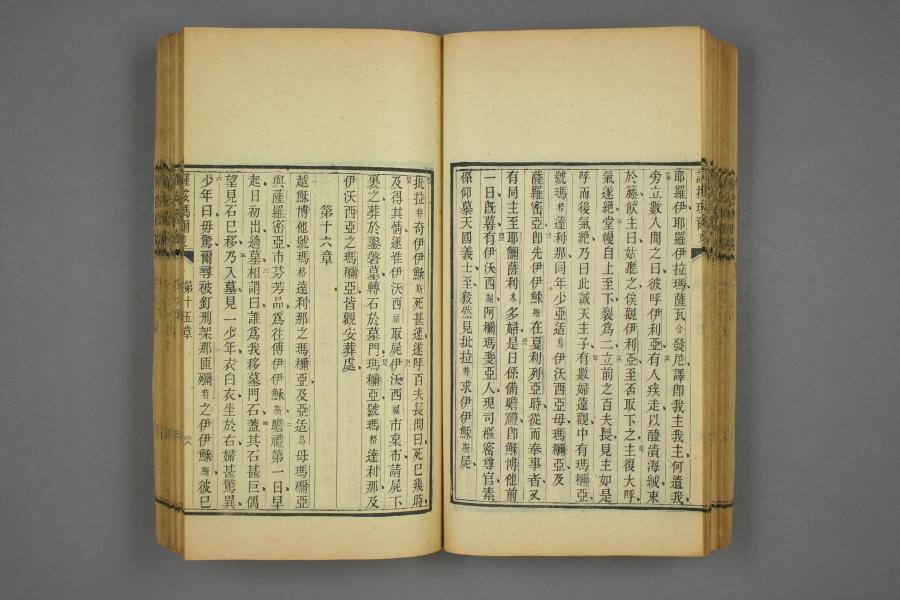 耶羅伊耶羅伊拉瑪薩瓦合發尼譯卽我主我主何遺我
旁立數人聞之曰彼呼伊利亞有人疾走以醯漬海絨束
於籐飲主曰姑聽之俟觀伊利亞至否取下之主復大呼
氣遂絕堂幔自上至下裂爲二立前之百夫長見主如是
呼而後氣絕乃曰此誠天主子有數婦遠觀中有瑪利亞
號瑪格達利那同年少亞适烏伊沃西亞母瑪利亞及
薩羅密亞卽先伊伊穌斯在戛利列亞時從而奉事者又
有同主至耶爾薩利木多婦是日係備瞻禮卽穌博他前
一日旣暮有伊沃西福阿利瑪斐亞人現司樞密尊官素
係仰慕天國義士至毅然見批拉特求伊伊穌斯屍
批拉特奇伊伊穌斯死甚速遂呼百夫長問曰死已幾時
及得其情遂准伊沃西福取屍伊沃西福市枲布請屍下
裹之葬於鑿磐墓轉石於墓門瑪利亞號瑪格達利那及
伊沃西亞之瑪利亞皆觀安葬處
第十六章
越穌博他號瑪格達利那之瑪利亞及亞适烏母瑪利亞
與薩羅密亞市芬芳品爲往傅伊伊穌斯瞻禮第一日早
起日初出適墓相謂曰誰爲我移墓門石蓋其石甚巨偶
望見石已移乃入墓見一少年衣白衣坐於右婦甚驚異
少年曰毋驚爾尋被釘刑架那匝利特之伊伊穌斯彼已
第十五章